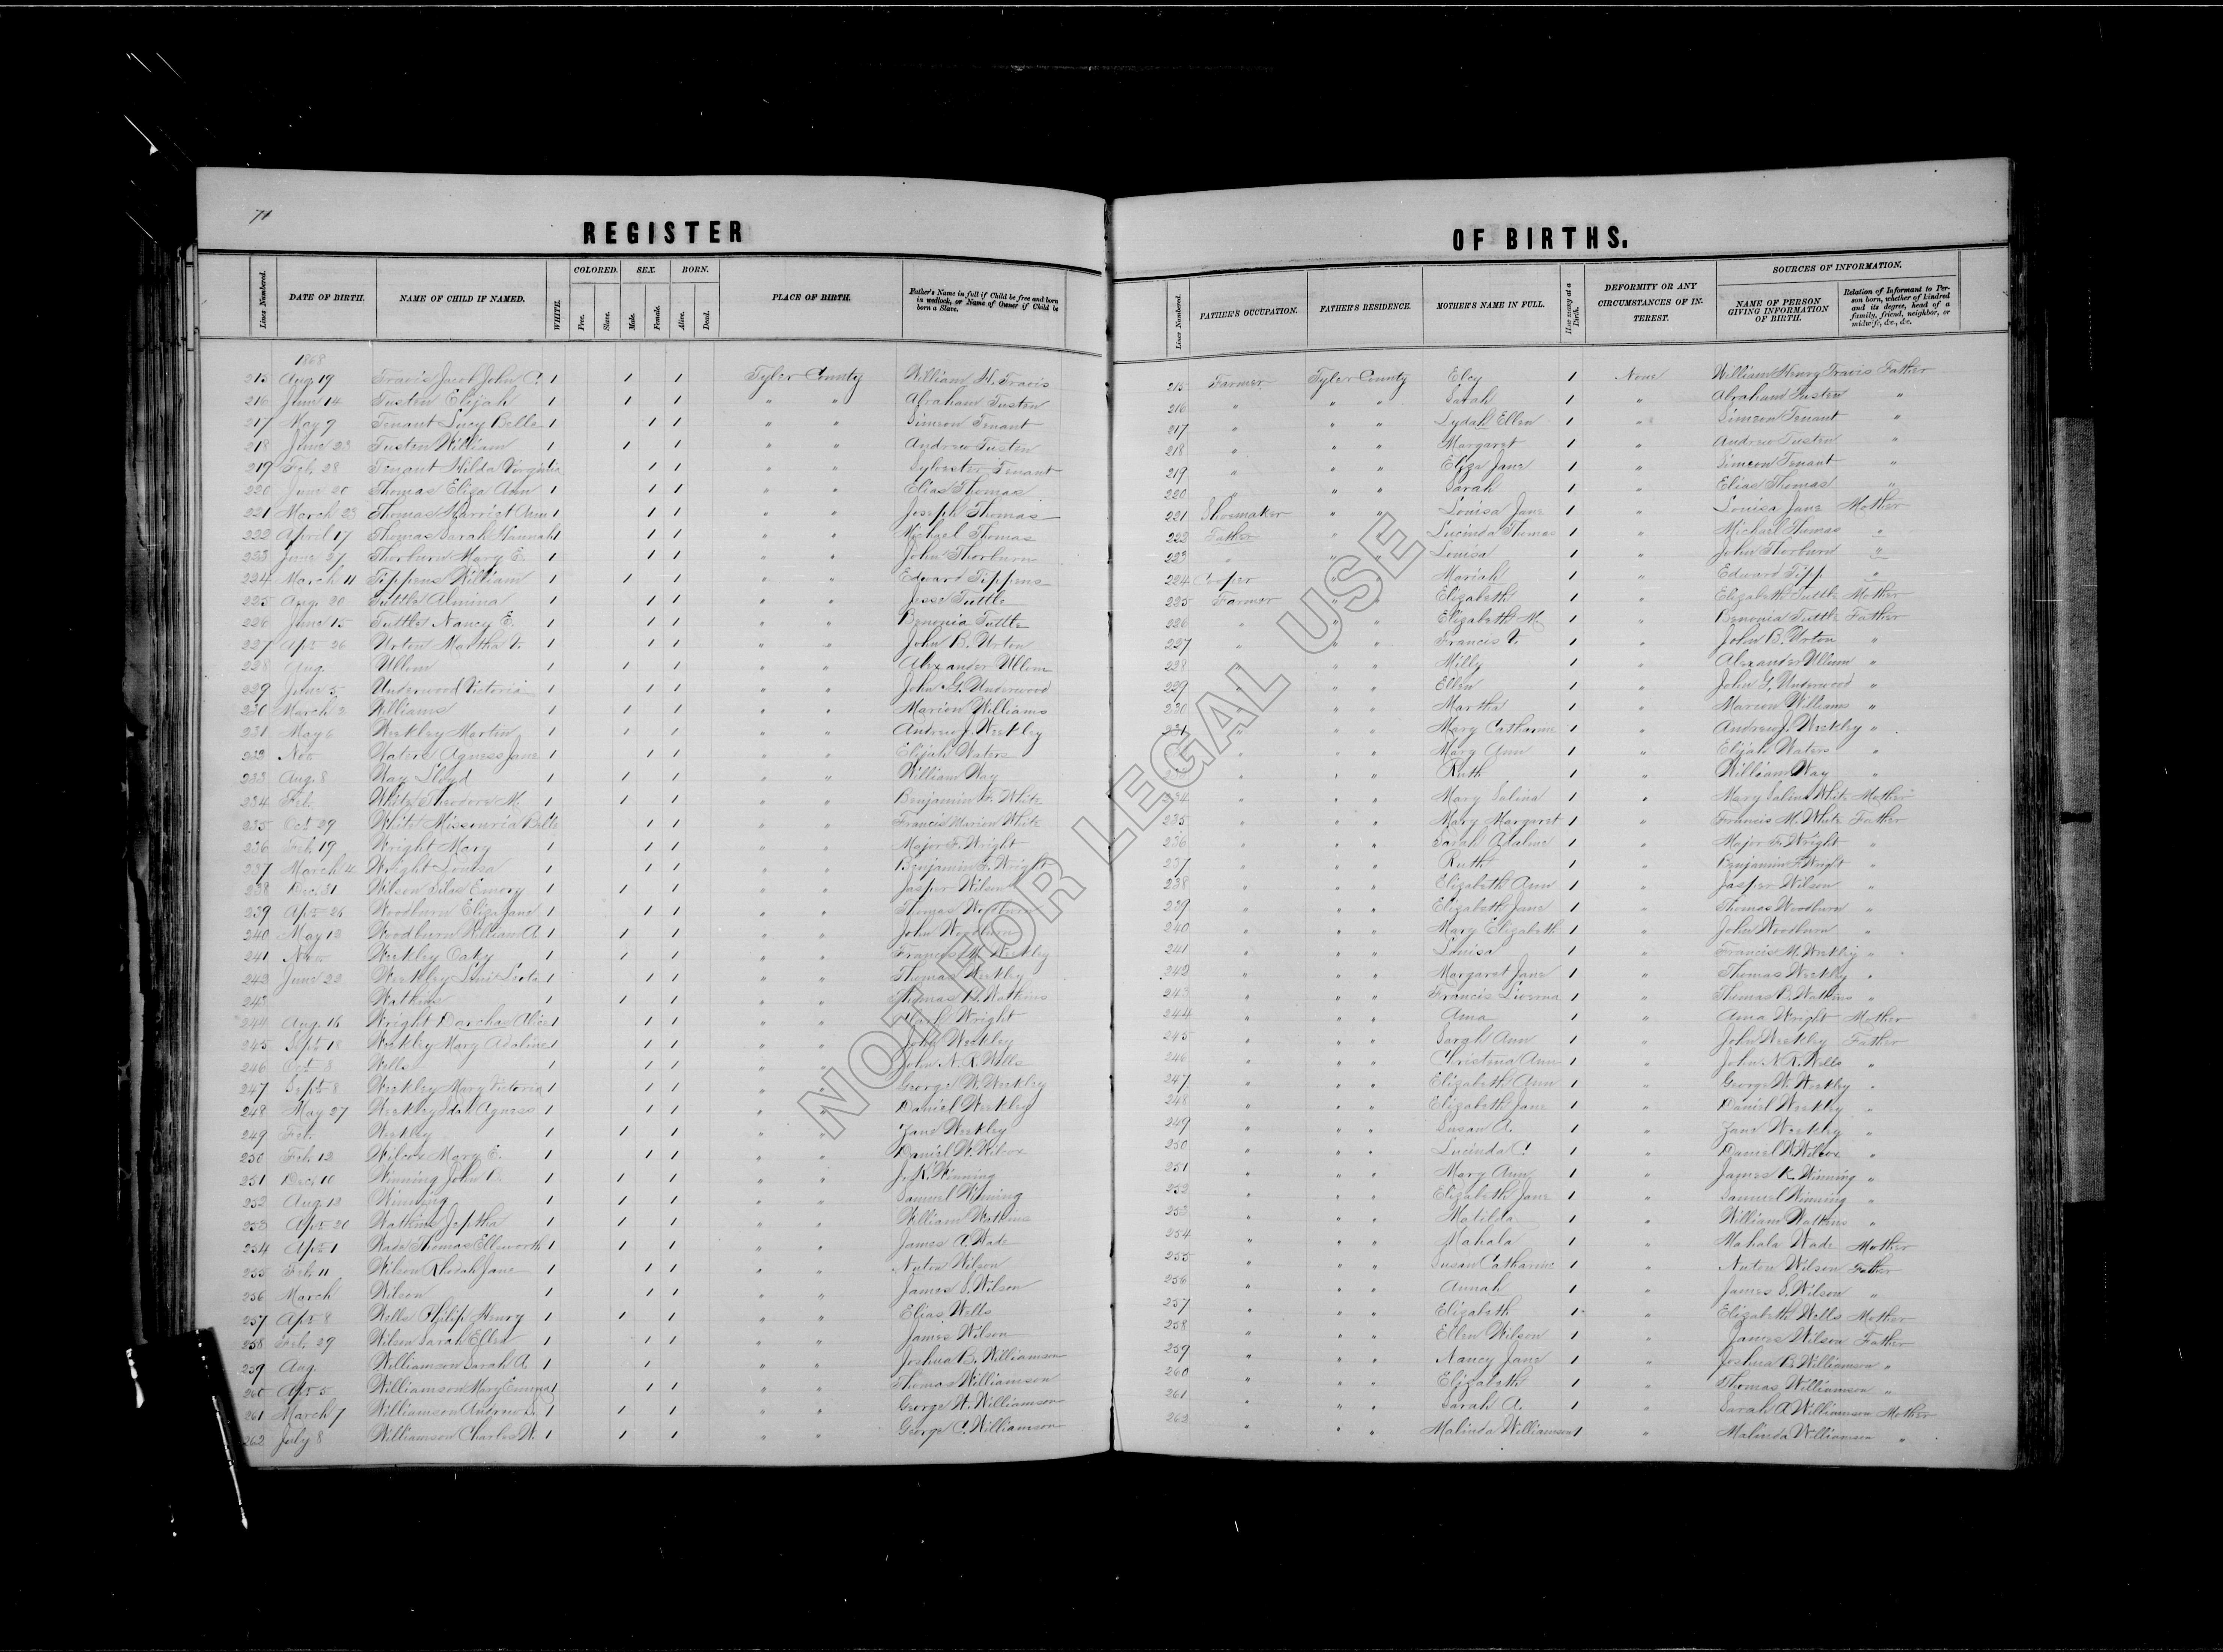 71
REGISTER OF BIRTHS.
Lines Numbered. DATE OF BIRTH. NAME OF CHILD IF NAMED. WHITE. COLORED. Free. Slave. SEX. Male. Female. BORN. Alive. Dead. PLACE OF BIRTH. Father's Name in full if Child be free and born in wedlock, or Name of Owner if Child be born a Slave. Lines Numbered. FATHER'S OCCUPATION. FATHER'S RESIDENCE. MOTHER'S NAME IN FULL. How many at a Birth. DEFORMITY OR ANY CIRCUMSTANCES OF INTEREST. SOURCES OF INFORMATION. NAME OF PERSON GIVING INFORMATION OF BIRTH. Relation of Informant to Person born, whether of kindred and its degree, head of a family, friend, neighbor, or midwife, &c., &c.
1868
215 Aug 19 Travis Jacob John C. 1 1 1 Tyler County William H. Travis 215 Farmer Tyler County Elcy 1 None William Henry Travis Father
216 June 14 Tusten Elijah 1 1 1 " " Abraham Tusten 216 " " " Sarah 1 " Abraham Tusten "
217 May 9 Tenant Lucy Belle 1 1 1 " " Simeon Tenant 217 " " " Lydah Ellen 1 " Simeon Tenant "
218 June 23 Tusten William 1 1 1 " " Andrew Tusten 218 " " " Margaret 1 " Andrew Tusten "
219 Feb 28 Tenant Hilda Virginia 1 1 " " Sylvester Tenant 219 " " " Eliza Jane 1 " Simeon Tenant "
220 June 20 Thomas Eliza Ann 1 1 1 " " Elias Thomas 220 " " " Sarah 1 " Elias Thomas "
221 March 23 Thomas Harriet Ann 1 1 1 " " Joseph Thomas 221 Shoemaker " " Louisa Jane 1 " Louisa Jane Mother
222 April 17 Thomas Sarah Hannah 1 1 1 " " Michael Thomas 222 Father " Lucinda Thomas 1 " Michael Thomas "
223 June 27 Thorburn Mary E. 1 1 1 " " John Thorburn 223 " " " Louisa 1 " John Thorburn "
224 March 11 Tippens William 1 1 1 " " Edward Tippens 224 Cooper " " Mariah 1 " Edward Tipp "
225 Aug. 20 Tuttle Almina 1 1 1 " " Jesse Tuttle 225 Farmer " " Elizabeth 1 " Elizabeth Tuttle Mother
226 June 15 Tuttle Nancy E. 1 1 1 " " Benonia Tuttle 226 " " " Elizabeth M. 1 " Benonia Tuttle Father
227 Apr 26 Urton Martha V. 1 1 1 " " John B. Urton 227 " " " Francis V. 1 " John B. Urton "
228 Aug. Ullom 1 1 1 " " Alexander Ullom 228 " " " Milly 1 " Alexander Ullum "
229 June 5 Underwood Victoria 1 1 1 " " John G. Underwood 229 " " " Ellen 1 " John G. Underwood "
230 March 2 Williams 1 1 1 " " Marion Williams 230 " " " Martha 1 " Marion Williams "
231 May 6 Weekley Martin 1 1 1 " " Andrew J. Weekley 231 " " " Mary Catharine 1 " Andrew J. Weekley "
232 Nov Waters Agness Jane 1 1 1 " " Elijah Waters " " " Mary Ann 1 " Elijah Waters "
233 Aug. 8 Way Lloyd 1 1 1 " " William Way " " " Ruth 1 " William Way "
234 Feb. White Theodore M. 1 1 1 " " Benjamin F. White 234 " " " Mary Salina 1 " Mary Salina White Mother
235 Oct 29 White Missouria Belle 1 1 " " Francis Marion White 235 " " " Mary Margaret 1 " Francis M. White Father
236 Feb. 19 Wright Mary 1 1 1 " " Major F. Wright 236 " " " Sarah Adaline 1 " Major F. Wright "
237 March 4 Wright Louisa 1 1 1 " " Benjamin F. Wright 237 " " " Ruth 1 " Benjamin F. Wright "
238 Dec. 21 Wilson Silas Emory 1 1 1 " " Jasper Wilson 238 " " " Elizabeth Ann 1 " Jasper Wilson "
239 Apr 26 Woodburn Eliza Jane 1 1 1 " " Thomas Woodburn 239 " " " Elizabeth Jane 1 " Thomas Woodburn "
240 May 12 Woodburn William A. 1 1 1 " " John Woodburn 240 " " " Mary Elizabeth 1 " John Woodburn "
241 Nov Weekley Oaty 1 1 1 " " Francis M. Weekley 241 " " " Louisa 1 " Francis M. Weekley "
242 June 22 Weekley 1 1 1 " " Thomas Weekley 242 " " " Margaret Jane 1 " Thomas Weekley "
243 Watkins 1 1 1 " " Thomas B. Watkins 243 " " " Francis 1 " Thomas B. Watkins "
244 Aug. 16 Wright Darchas Alice 1 1 1 " " Mark Wright 244 " " " Ama 1 " Ama Wright Mother
245 Sept 18 Weekley Mary Adaline 1 1 1 " " John Weekley 245 " " " Sarah Ann 1 " John Weekley Father
246 Oct 8 Wells 1 1 1 " " John N. R. Wells 246 " " " Christina Ann 1 " John N. R. Wells "
247 Sept 8 Weekley Mary Victoria 1 1 1 " " George W. Weekley 247 " " " Elizabeth Ann 1 " George W. Weekley "
248 May 27 Weekley Idah Agness 1 1 1 " " Daniel Weekley 248 " " " Elizabeth Jane 1 " Daniel Weekley "
249 Feb. Weekley 1 1 1 " " Zane Weekley 249 " " " Susan A. 1 " Zane Weekley "
250 Feb. 12 Wilcox Mary E. 1 1 1 " " Daniel W. Wilcox 250 " " " Lucinda C. 1 " Daniel W. Wilcox "
251 Dec. 10 Winning John 1 1 1 " " J. K. Winning 251 " " " Mary Ann 1 " James K. Winning "
252 Aug. 12 Winning 1 1 1 " " Samuel Winning 252 " " " Elizabeth Jane 1 " Samuel Winning "
253 Apr 20 Watkins Jeptha 1 1 1 " " William Watkins 253 " " " Matilda 1 " William Watkins "
254 Apr 1 Wade Thomas Ellsworth 1 1 1 " " James A. Wade 254 " " " Mahala 1 " Mahala Wade Mother
255 Feb. 11 Wilson Rhodah Jane 1 1 1 " " Nuton Wilson 255 " " " Susan Catharine 1 " Nuton Wilson Father
256 March Wilson 1 1 1 " " James S. Wilson 256 " " " Annah 1 " James S. Wilson "
257 Apr 8 Wells Philip Henry 1 1 1 " " Elias Wells 257 " " " Elizabeth 1 " Elizabeth Wells Mother
258 Feb. 29 Wilson Sarah Ellen 1 1 1 " " James Wilson 258 " " " Ellen Wilson 1 " James Wilson Father
259 Aug. Williamson Sarah A. 1 1 1 " " Joshua B. Williamson 259 " " " Nancy Jane 1 " Joshua B. Williamson "
260 Apr 5 Williamson Mary Emma 1 1 1 " " Thomas Williamson 260 " " " Elizabeth 1 " Thomas Williamson "
261 March 7 Williamson Andrew 1 1 1 " " George W. Williamson 261 " " " Sarah A. 1 " Sarah A Williamson Mother
262 July 8 Williamson Charles W. 1 1 1 " " George C. Williamson 262 " " " Malinda Williamson 1 " Malinda Williamson "
NOT FOR LEGAL USE